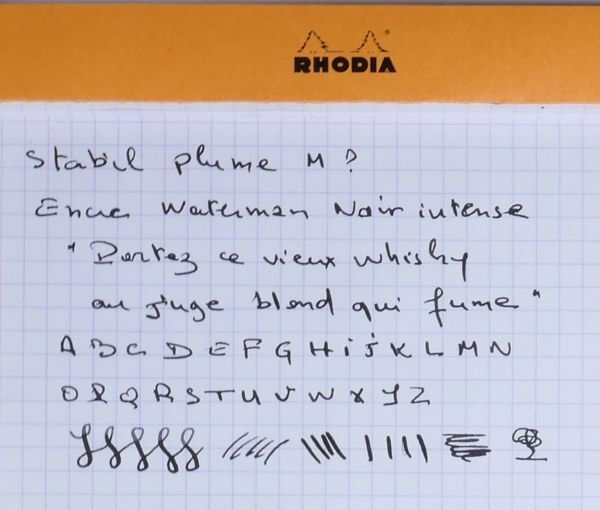 RHODIA
Stabil plume M ?
Encre Waterman Noir intense
" Portez ce vieux whisky
au juge blond qui fume "
A B C D E F G H i j K L M N
O P Q R S T U V W X Y Z